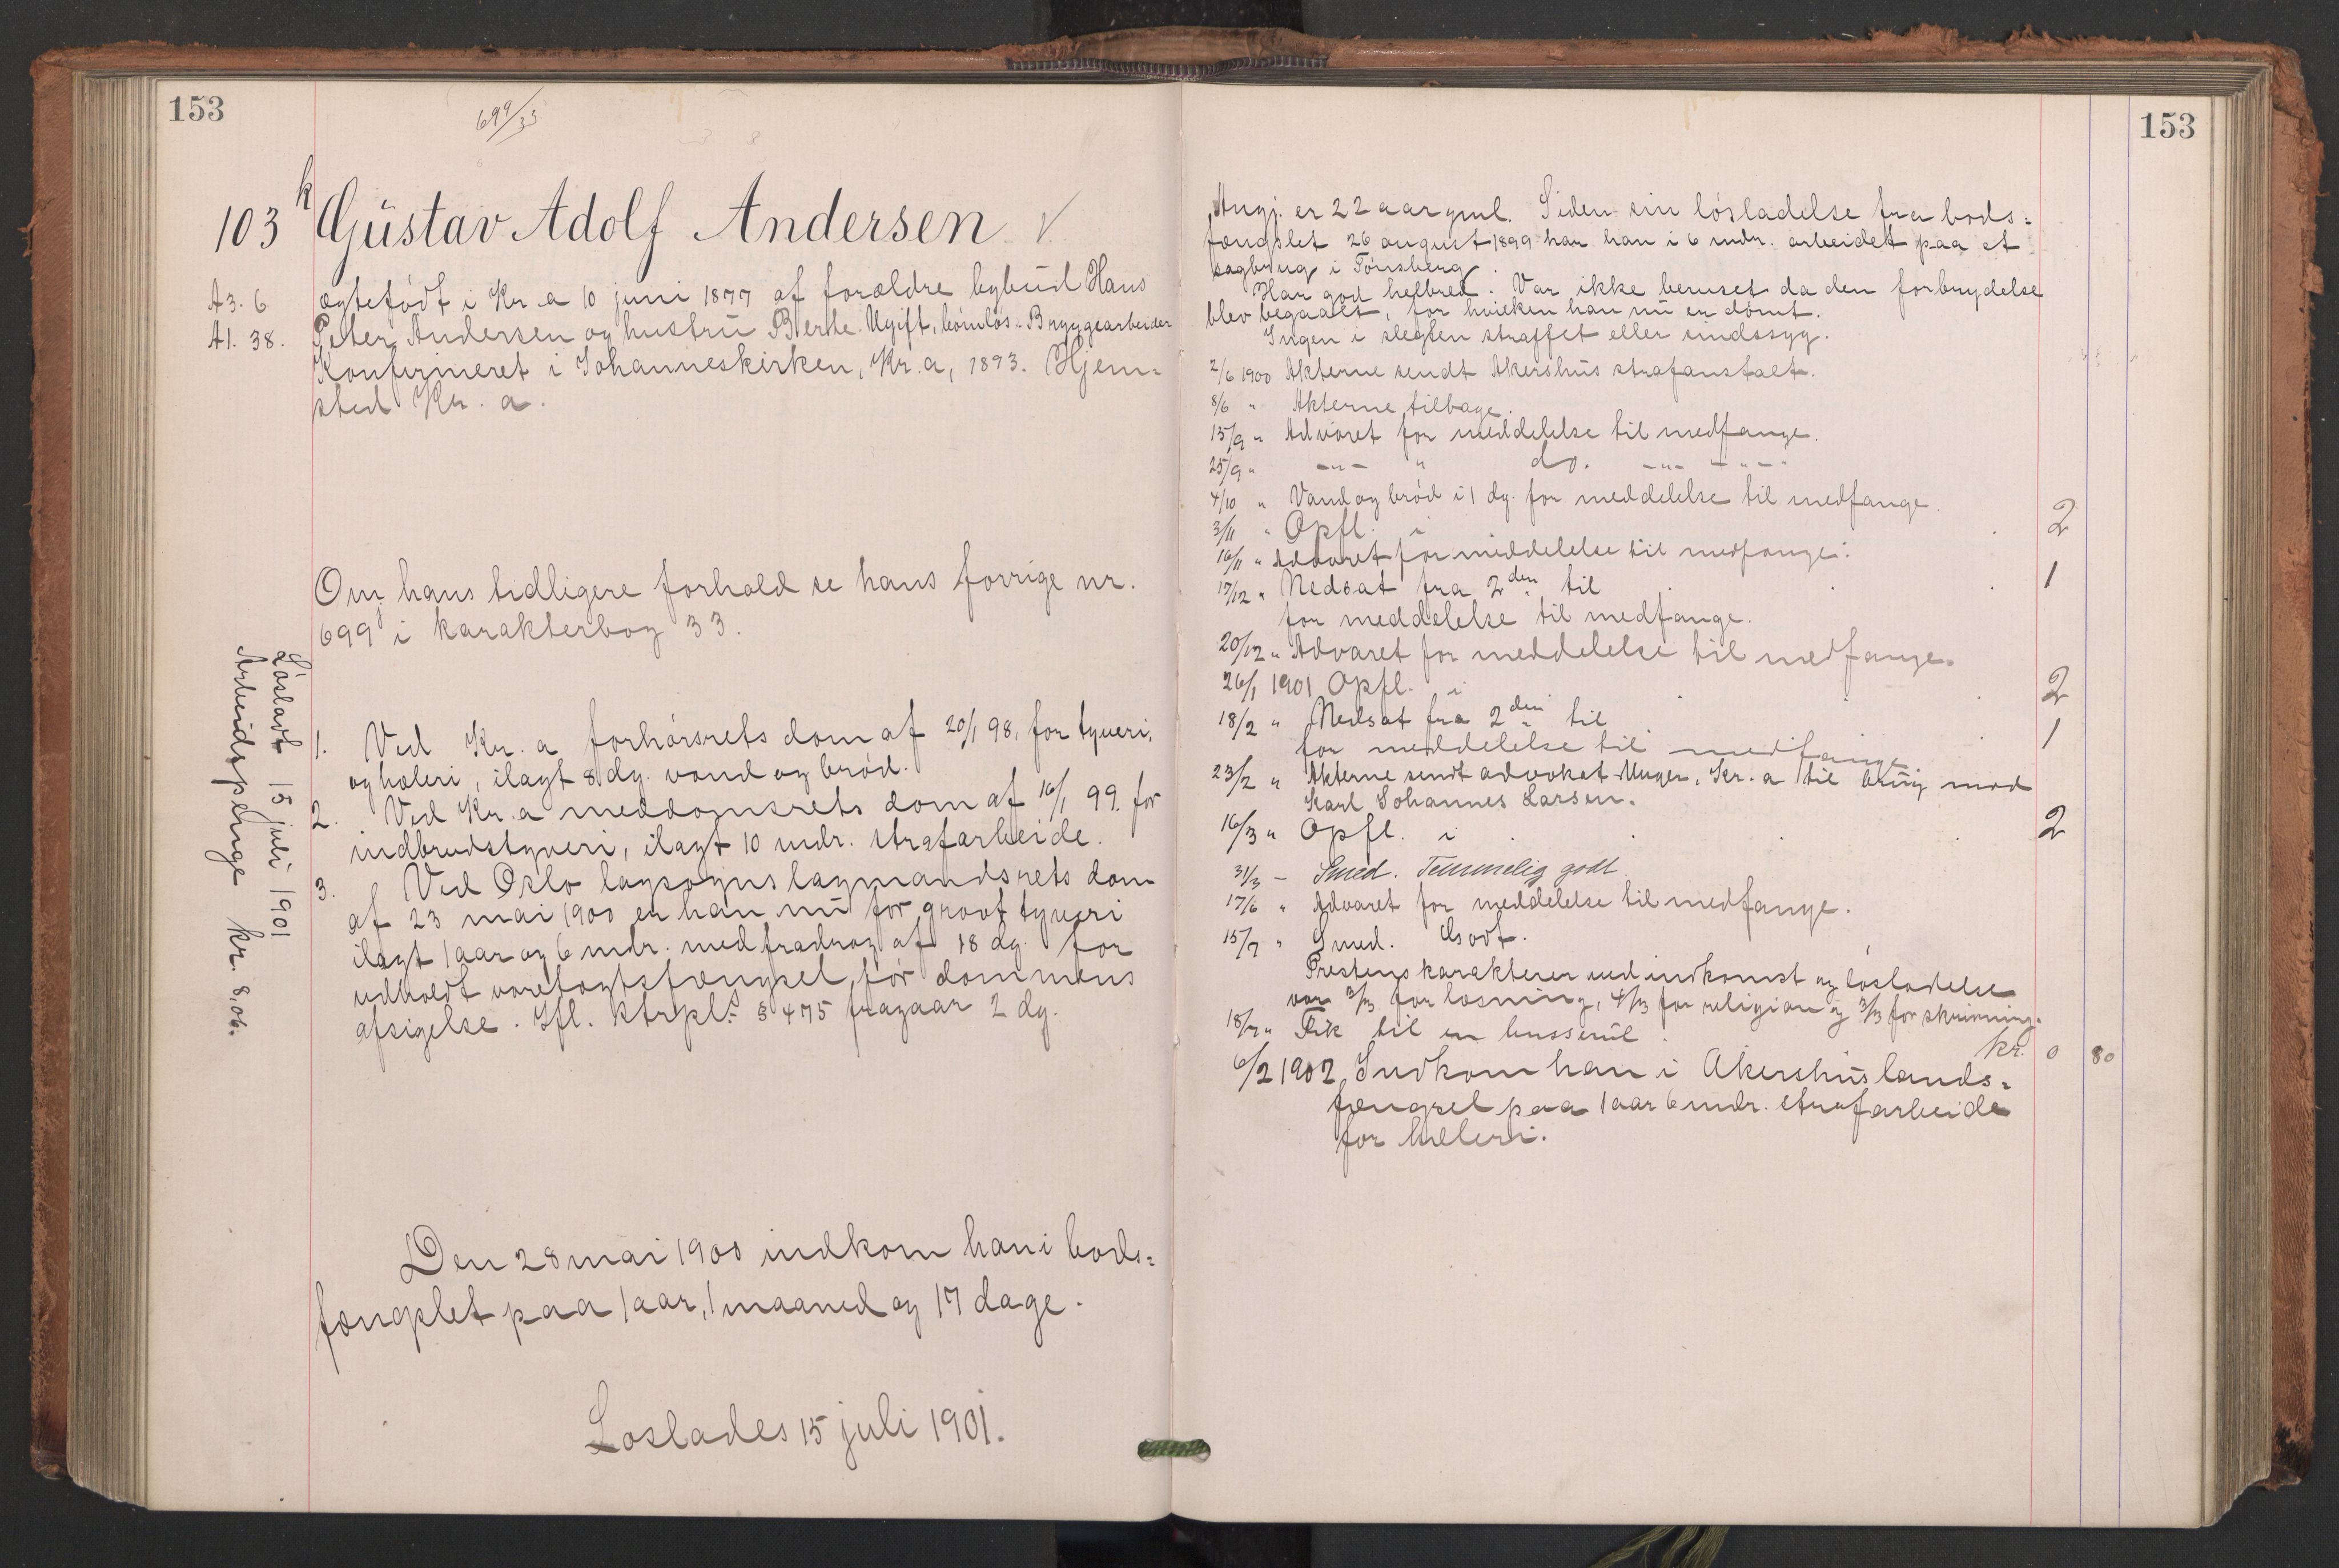 153
699/33
103 k Gustav Adolf Andersen
A3. 6.
A1. 38.
ægtefødt i Kr.a 10 juni 1877 af forældre bybud Hans
Peter Andersen og hustru Berte. Ugift, børnløs. Bryggearbeider
Konfirmeret i Johanneskirken, Kr.a, 1893. Hjem-
sted Kr.a.
Om hans tidligere forhold se hans forrige nr.
699 i karakterbog 33.
Løsladt 15 juli 1901
Arbeidspenge kr. 8,06.
1. Ved Kr.a forhørsrets dom af 20/1 98, for tyveri,
og hæleri, ilagt 8 dg. vand og brød.
2. Ved Kr.a meddomsrets dom af 16/1 99, for
indbrudstyveri, ilagt 10 mdr. strafarbeide.
3. Ved Oslo lagsogns lagmandsrets dom
af 23 mai 1900 er han nu for grovt tyveri
ilagt 1 aar og 6 mdr. med fradrag af 18 dg. for
udholdt varetægtsfængsel før dommens
afsigelse. Ifl. strpl. § 475 fragaar 2 dg.
Den 28 mai 1900 indkom han i bods-
fængslet paa 1 aar, 1 maaned og 17 dage.
Løslades 15 juli 1901.
153
Angj. er 22 aar gml. Siden sin løsladelse fra bods-
fængslet 26 august 1899 har han i 6 mdr. arbeidet paa et
sagbrug i Tønsberg.
Har god helbred. Var ikke beruset da den forbrydelse
blev begaaet, for hvilken han nu er dømt.
Ingen i slegten straffet eller sindssyg.
2/6 1900 Akterne sendt Akershus strafanstalt.
8/6 " Akterne tilbage.
15/9 " Advaret for meddelelse til medfange.
25/9 " -"- " do. -"- -"-
4/10 " Vand og brød i 1 dg. for meddelelse til medfange.
3/11 " Opfl. i 2
16/11 " Advaret for meddelelse til medfange.
17/12 " Nedsat fra 2den til 1
for meddelelse til medfange.
20/12 " Advaret for meddelelse til medfange.
26/1 1901 Opfl. i 2
18/2 " Nedsat fra 2den til 1
for meddelelse til medfange.
23/2 " Akterne sendt advokat Kr.a til brug mod
Karl Johannes Larsen.
16/3 " Opfl. i 2
31/3 - Smed. Temmelig godt.
17/6 " Advaret for meddelelse til medfange.
15/7 " Smed. Godt.
Prestens karakterer ved indkomst og løsladelse
var 3/3 for læsning, 4/3 for religion og 3/3 for skrivning.
18/7 " Fik til en busserul kr. 0 80
6/2 1902 Indkom han i Akershus lands-
fængsel paa 1 aar 6 mdr. strafarbeide
for hæleri.